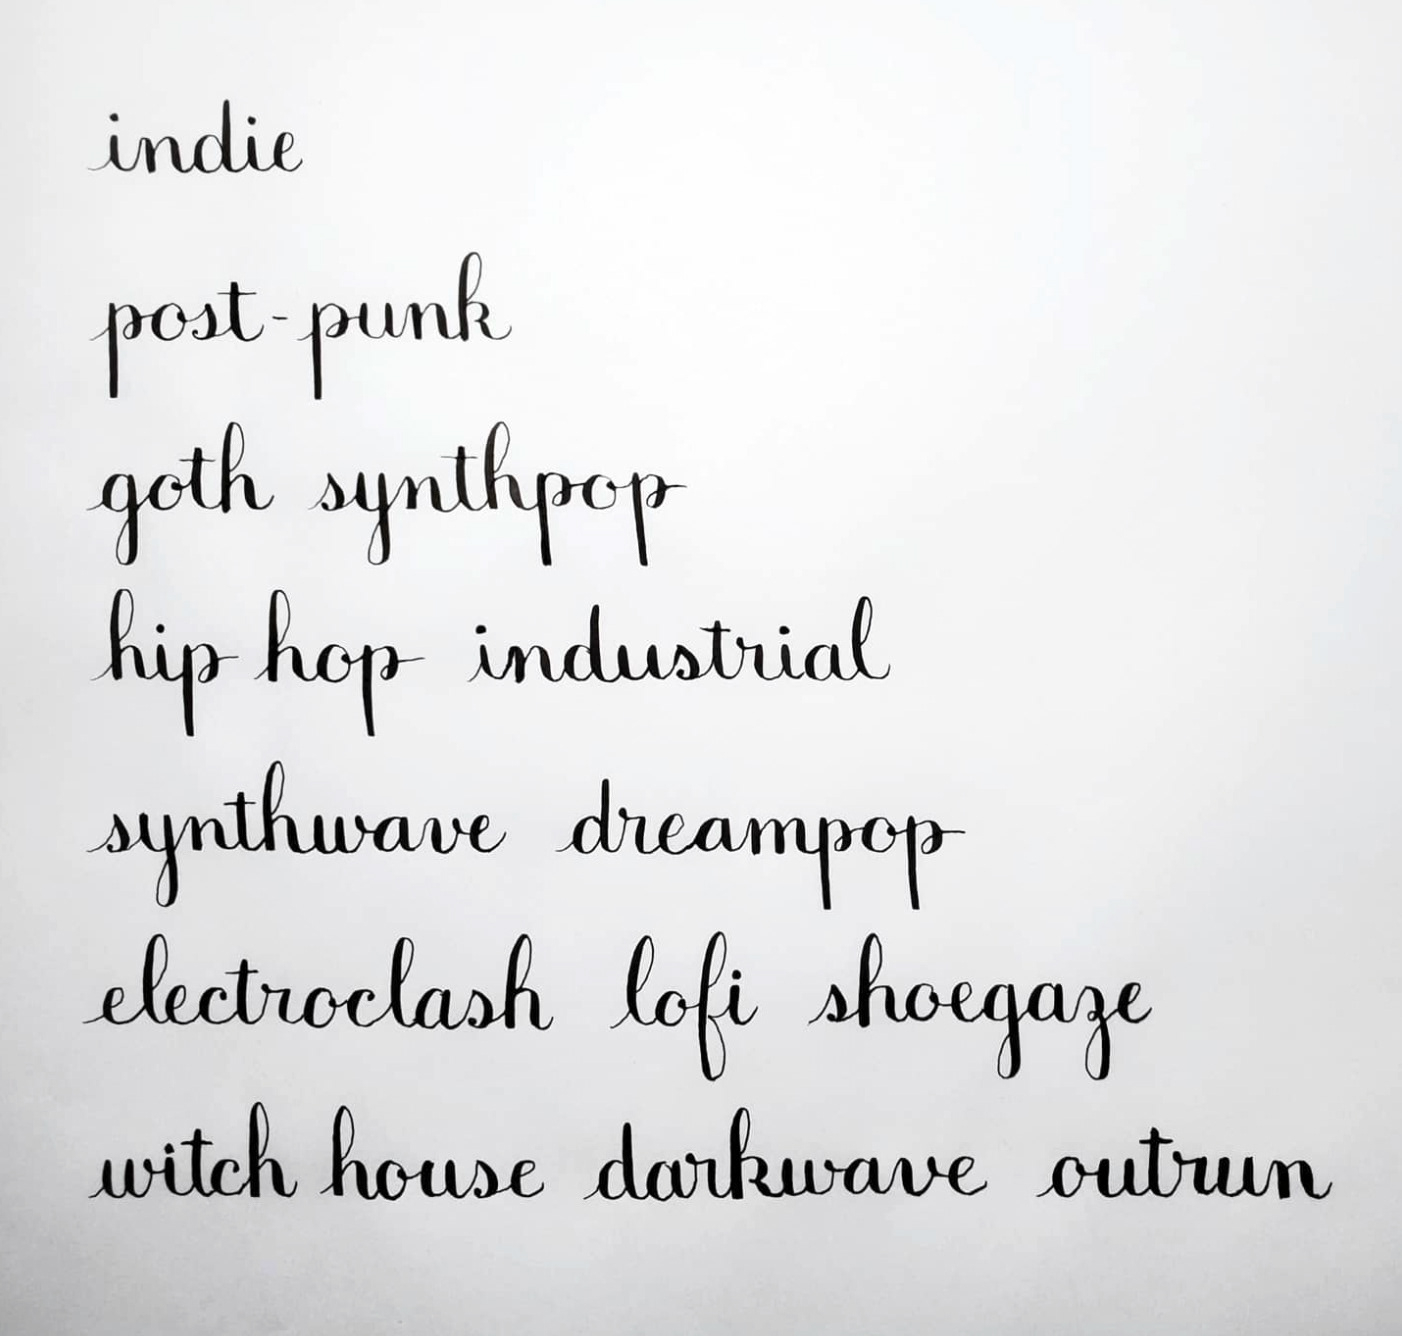 indie
post-punk
goth synthpop
hip hop industrial
synthwave dreampop
electroclash lofi shoegaze
witch house darkwave outrun